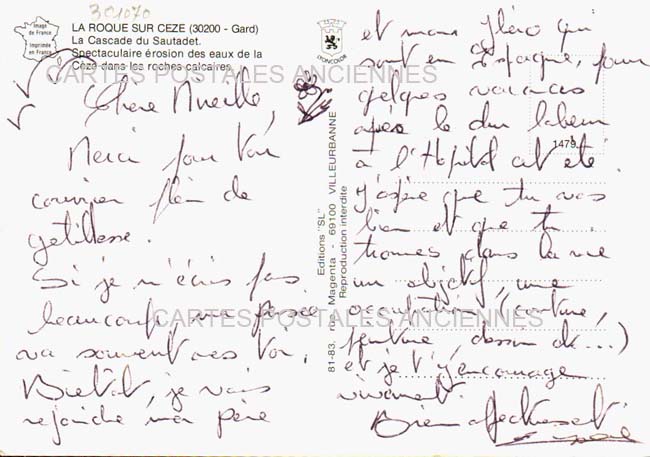 301070
Image
de France
Imprimée
en France
LA ROQUE SUR CEZE (30200 - Gard)
La Cascade du Sautadet.
Spectaculaire érosion des eaux de la
Cèze dans les roches calcaires.
LYONCOLOR
CARTES POSTALES ANCIENNES
Chère Mireille,
Merci pour ton
courrier plein de
getillesse.
Si je n'écris pas
beaucoup, ma pensée
va souvent vers toi.
Bientôt, je vais
rejoindre mon père
Editions "SL"
81-83, rue Magenta - 69100 VILLEURBANNE
Reproduction interdite
1479
et mon qui
sont en Espagne, pour
quelques vacances
après le dur labeur
à l'Hôpital cet été.
J'espère que tu vas
bien et que tu
trouves dans la vie
un objectif, une
occupation (couture,
peinture, dessin etc...)
et je t'y encourage
vivement.
Bien affectueusement.
CARTES POSTALES ANCIENNES